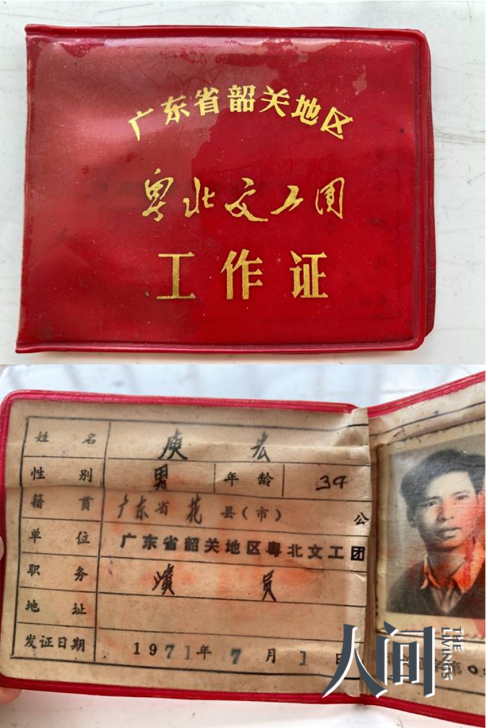 广东省韶关地区
粤北文工团
工作证
姓名 庾宏
性别 男 年龄 34
籍贯 广东省花县(市)
公
单位 广东省韶关地区粤北文工团
职务 演员
地址
发证日期 1971年7月1日
人间
THE LIVINGS